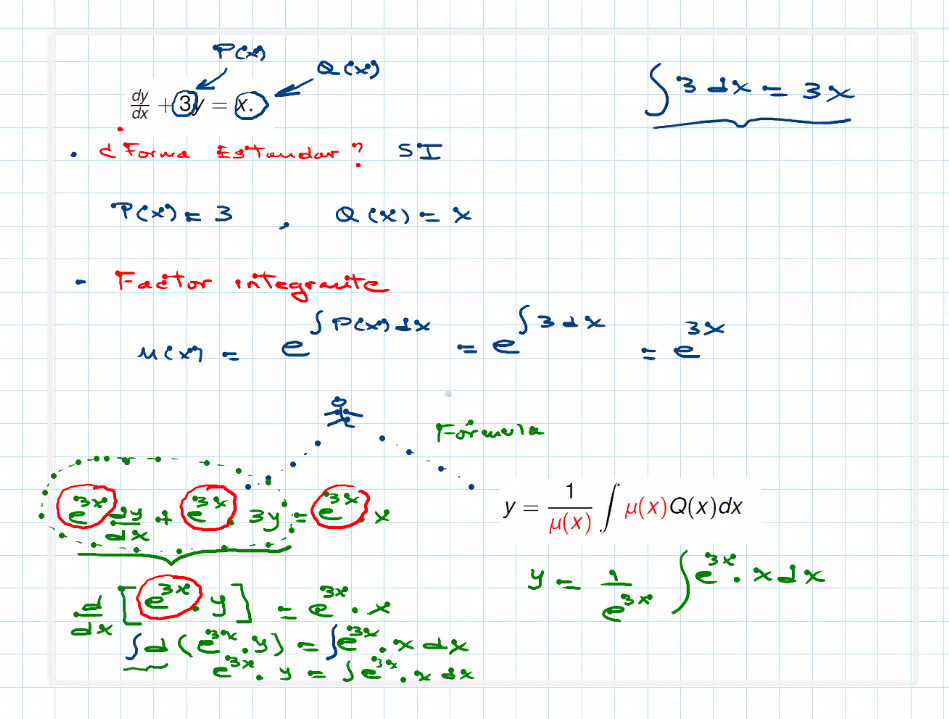 P(x)
Q(x)
dy/dx + 3y = x.
∫ 3 dx = 3x
• ¿Forma Estandar? SI
P(x) = 3 , Q(x) = x
- Factor integrante
μ(x) = e^{∫ P(x) dx} = e^{∫ 3 dx} = e^{3x}
Fórmula
e^{3x} dy/dx + e^{3x} · 3y = e^{3x} · x
y = 1/μ(x) ∫ μ(x)Q(x)dx
y = 1/e^{3x} ∫ e^{3x} · x dx
d/dx [e^{3x} · y] = e^{3x} · x
∫ d (e^{3x} · y) = ∫ e^{3x} · x dx
e^{3x} · y = ∫ e^{3x} · x dx